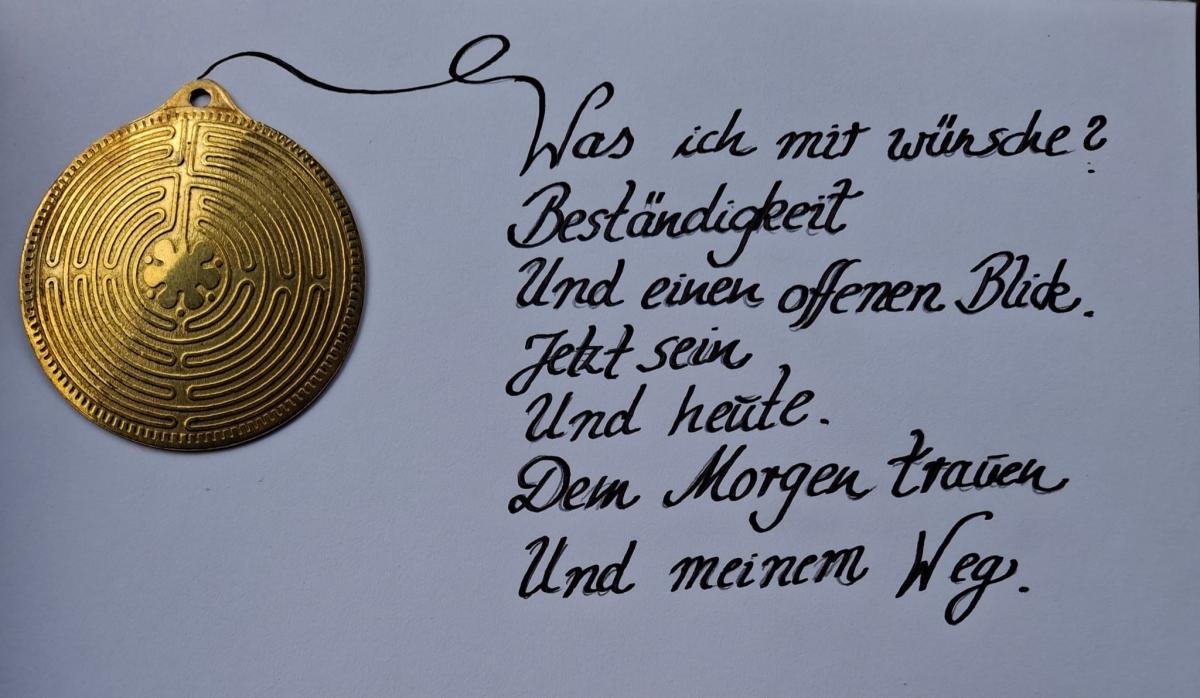 Was ich mir wünsche?
Beständigkeit
Und einen offenen Blick.
Jetzt sein
Und heute.
Dem Morgen trauen
Und meinem Weg.